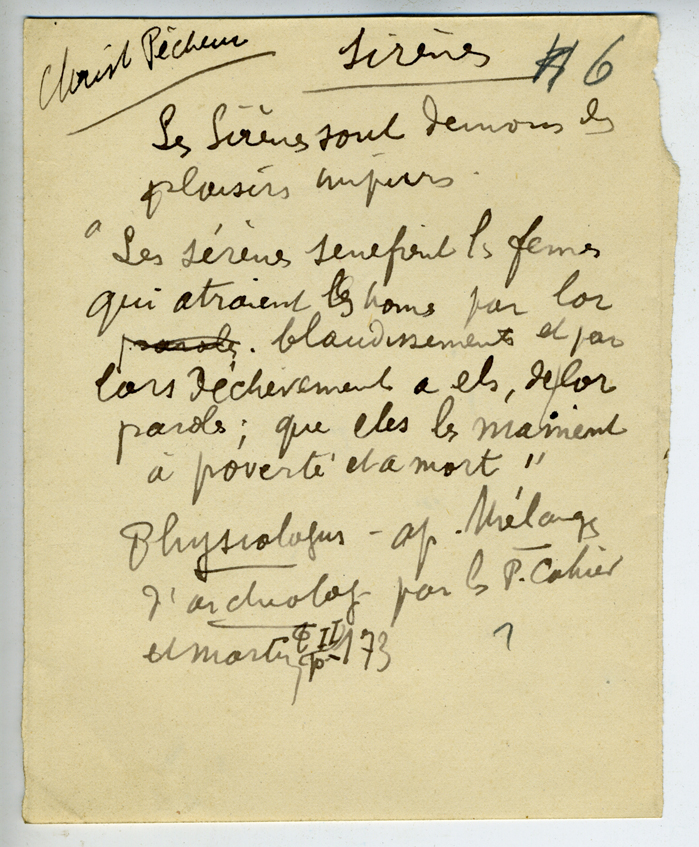 Christ Pêcheur
Sirènes
6
Les Sirènes sont démons des
plaisirs impurs.
" Les sérènes senefient ls femes
qui atraient les homs par lor
parols. blandissements et par
lors déchevements a els, de lor
parols; que eles ls mainent
à poverté et a mort "
Physiologus - ap. Mélanges
d'archéolog par les P. Cahier
et Martin T II p 173